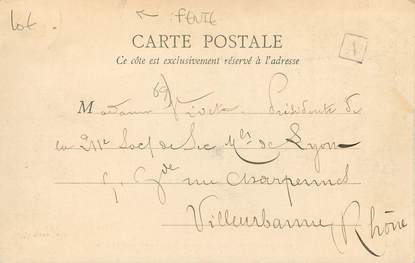 Lot
FENTE
CARTE POSTALE
Ce côté est exclusivement réservé à l'adresse
69)
Madame Présidente de
la 211e Soc de Sec Mels de Lyon
5, Gde rue Charpennes
Villeurbanne Rhône